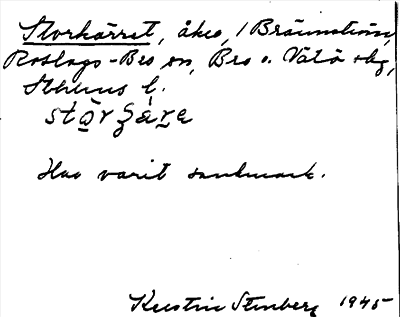 Storkärret, åker, i Brännström,
Roslags-Bro sn, Bro o. Vätö skg,
Sthlms l.
Har varit sankmark.
Kerstin Stenberg 1945